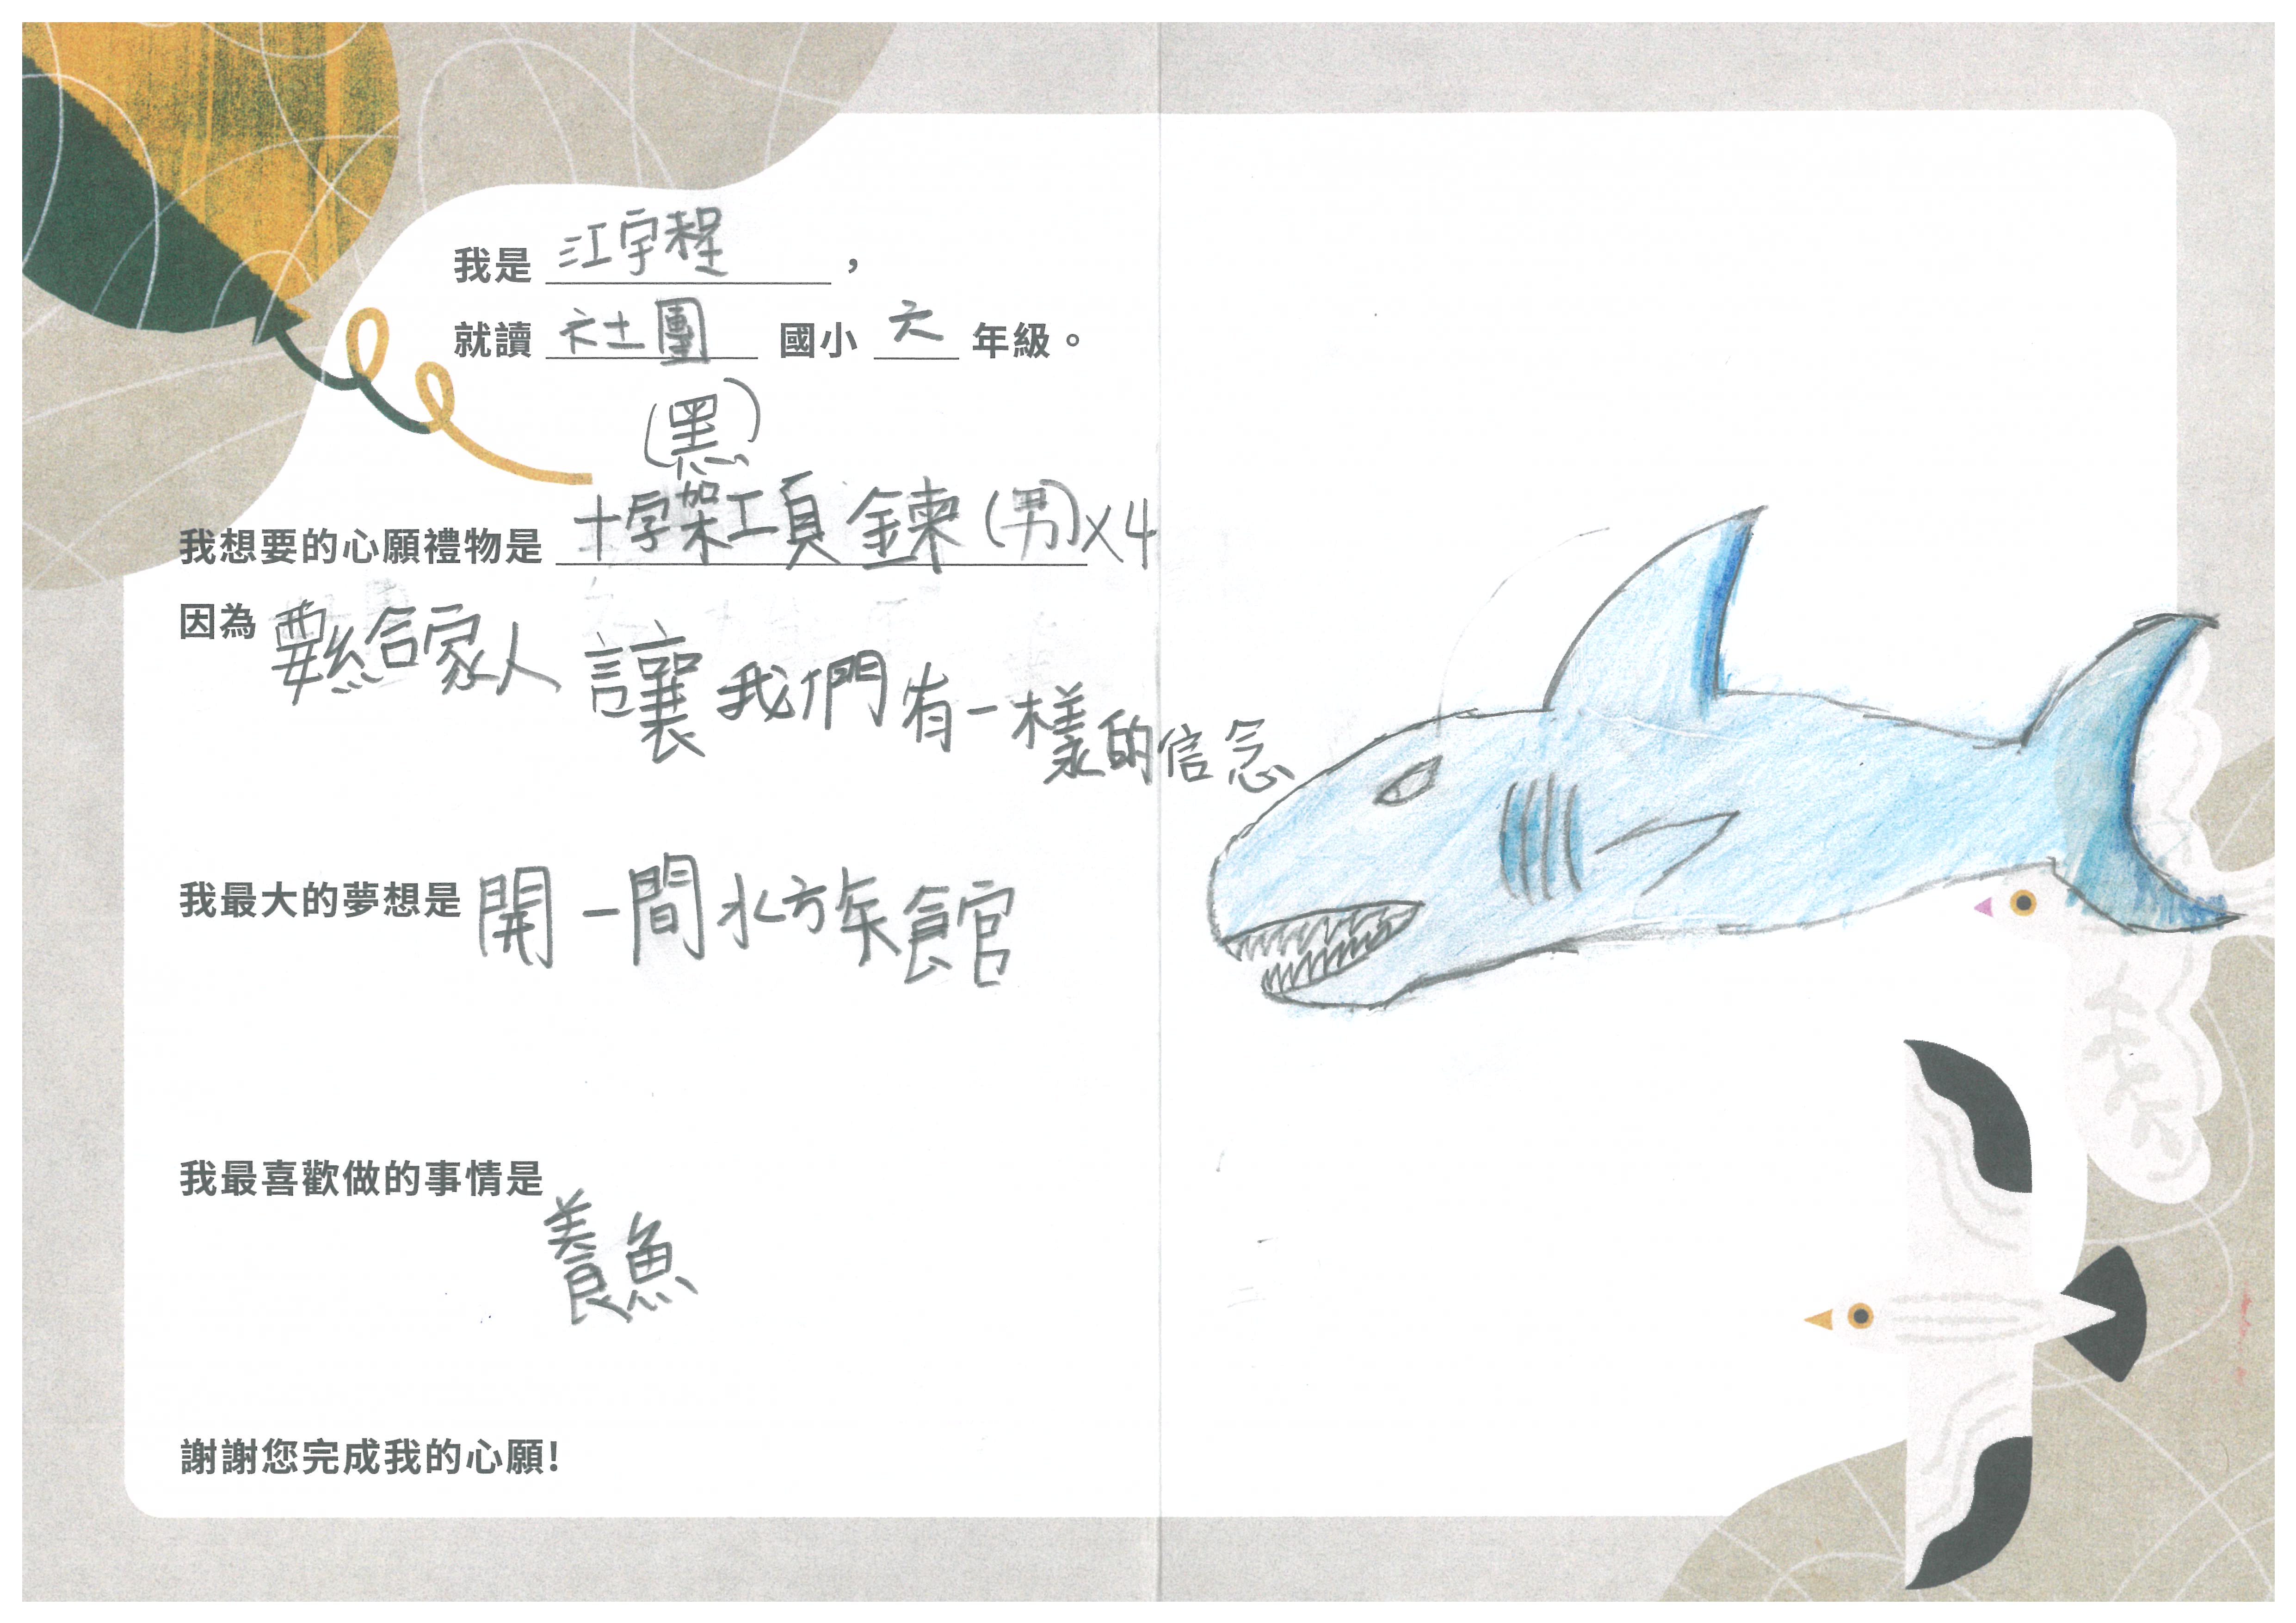 我是 江宇程 ，
就讀 社團 國小 六 年級。
(黑)
我想要的心願禮物是 十字架項鍊(男)x4
因為 要給家人 讓我們有一樣的信念
我最大的夢想是 開一間水族館
我最喜歡做的事情是
養魚
謝謝您完成我的心願!